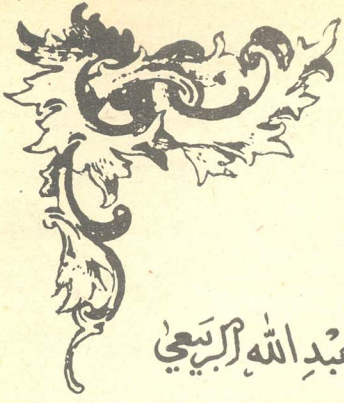 عَبْدِ اللهِ الرَّبِيعِيّ